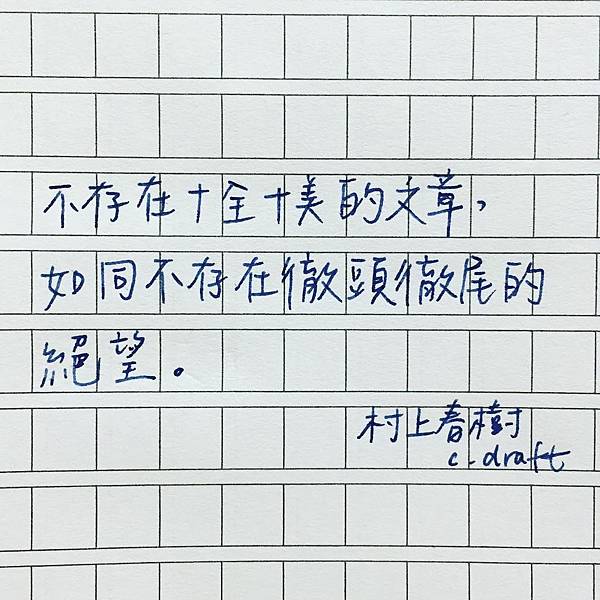 不存在十全十美的文章，
如同不存在徹頭徹尾的
絕望。
村上春樹
c.draft